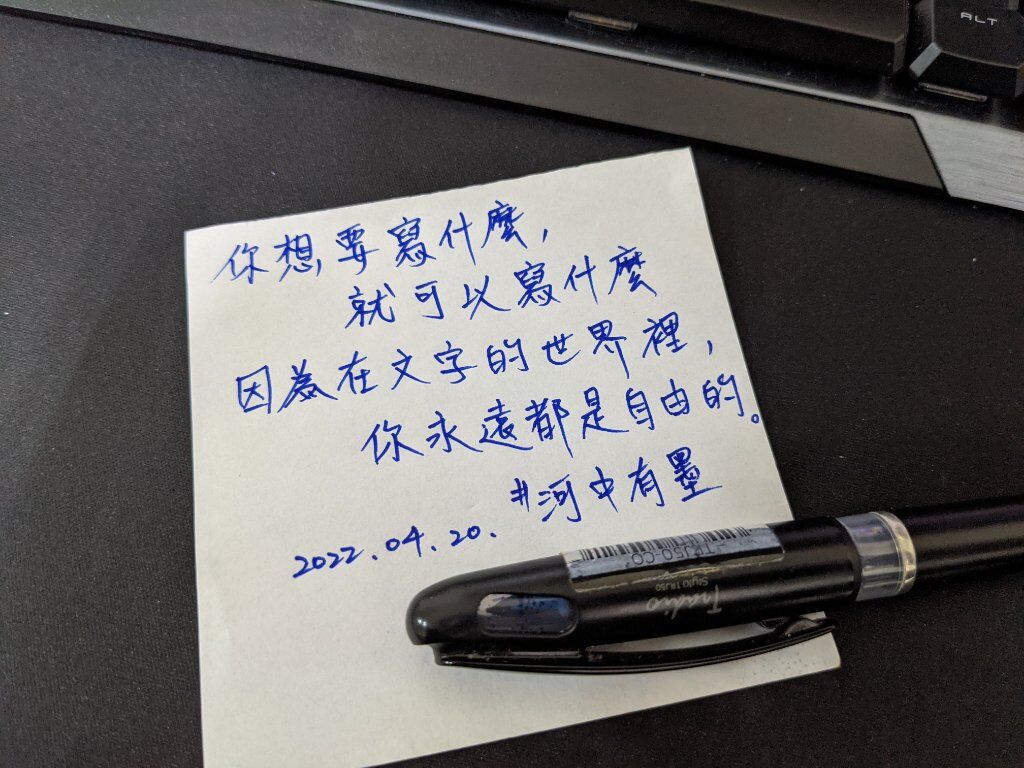 ALT
你想要寫什麼,
就可以寫什麼
因為在文字的世界裡,
你永遠都是自由的。
#河中有墨
2022.04.20.
TRJ50-CO
Tradio
Stylo TRJ50